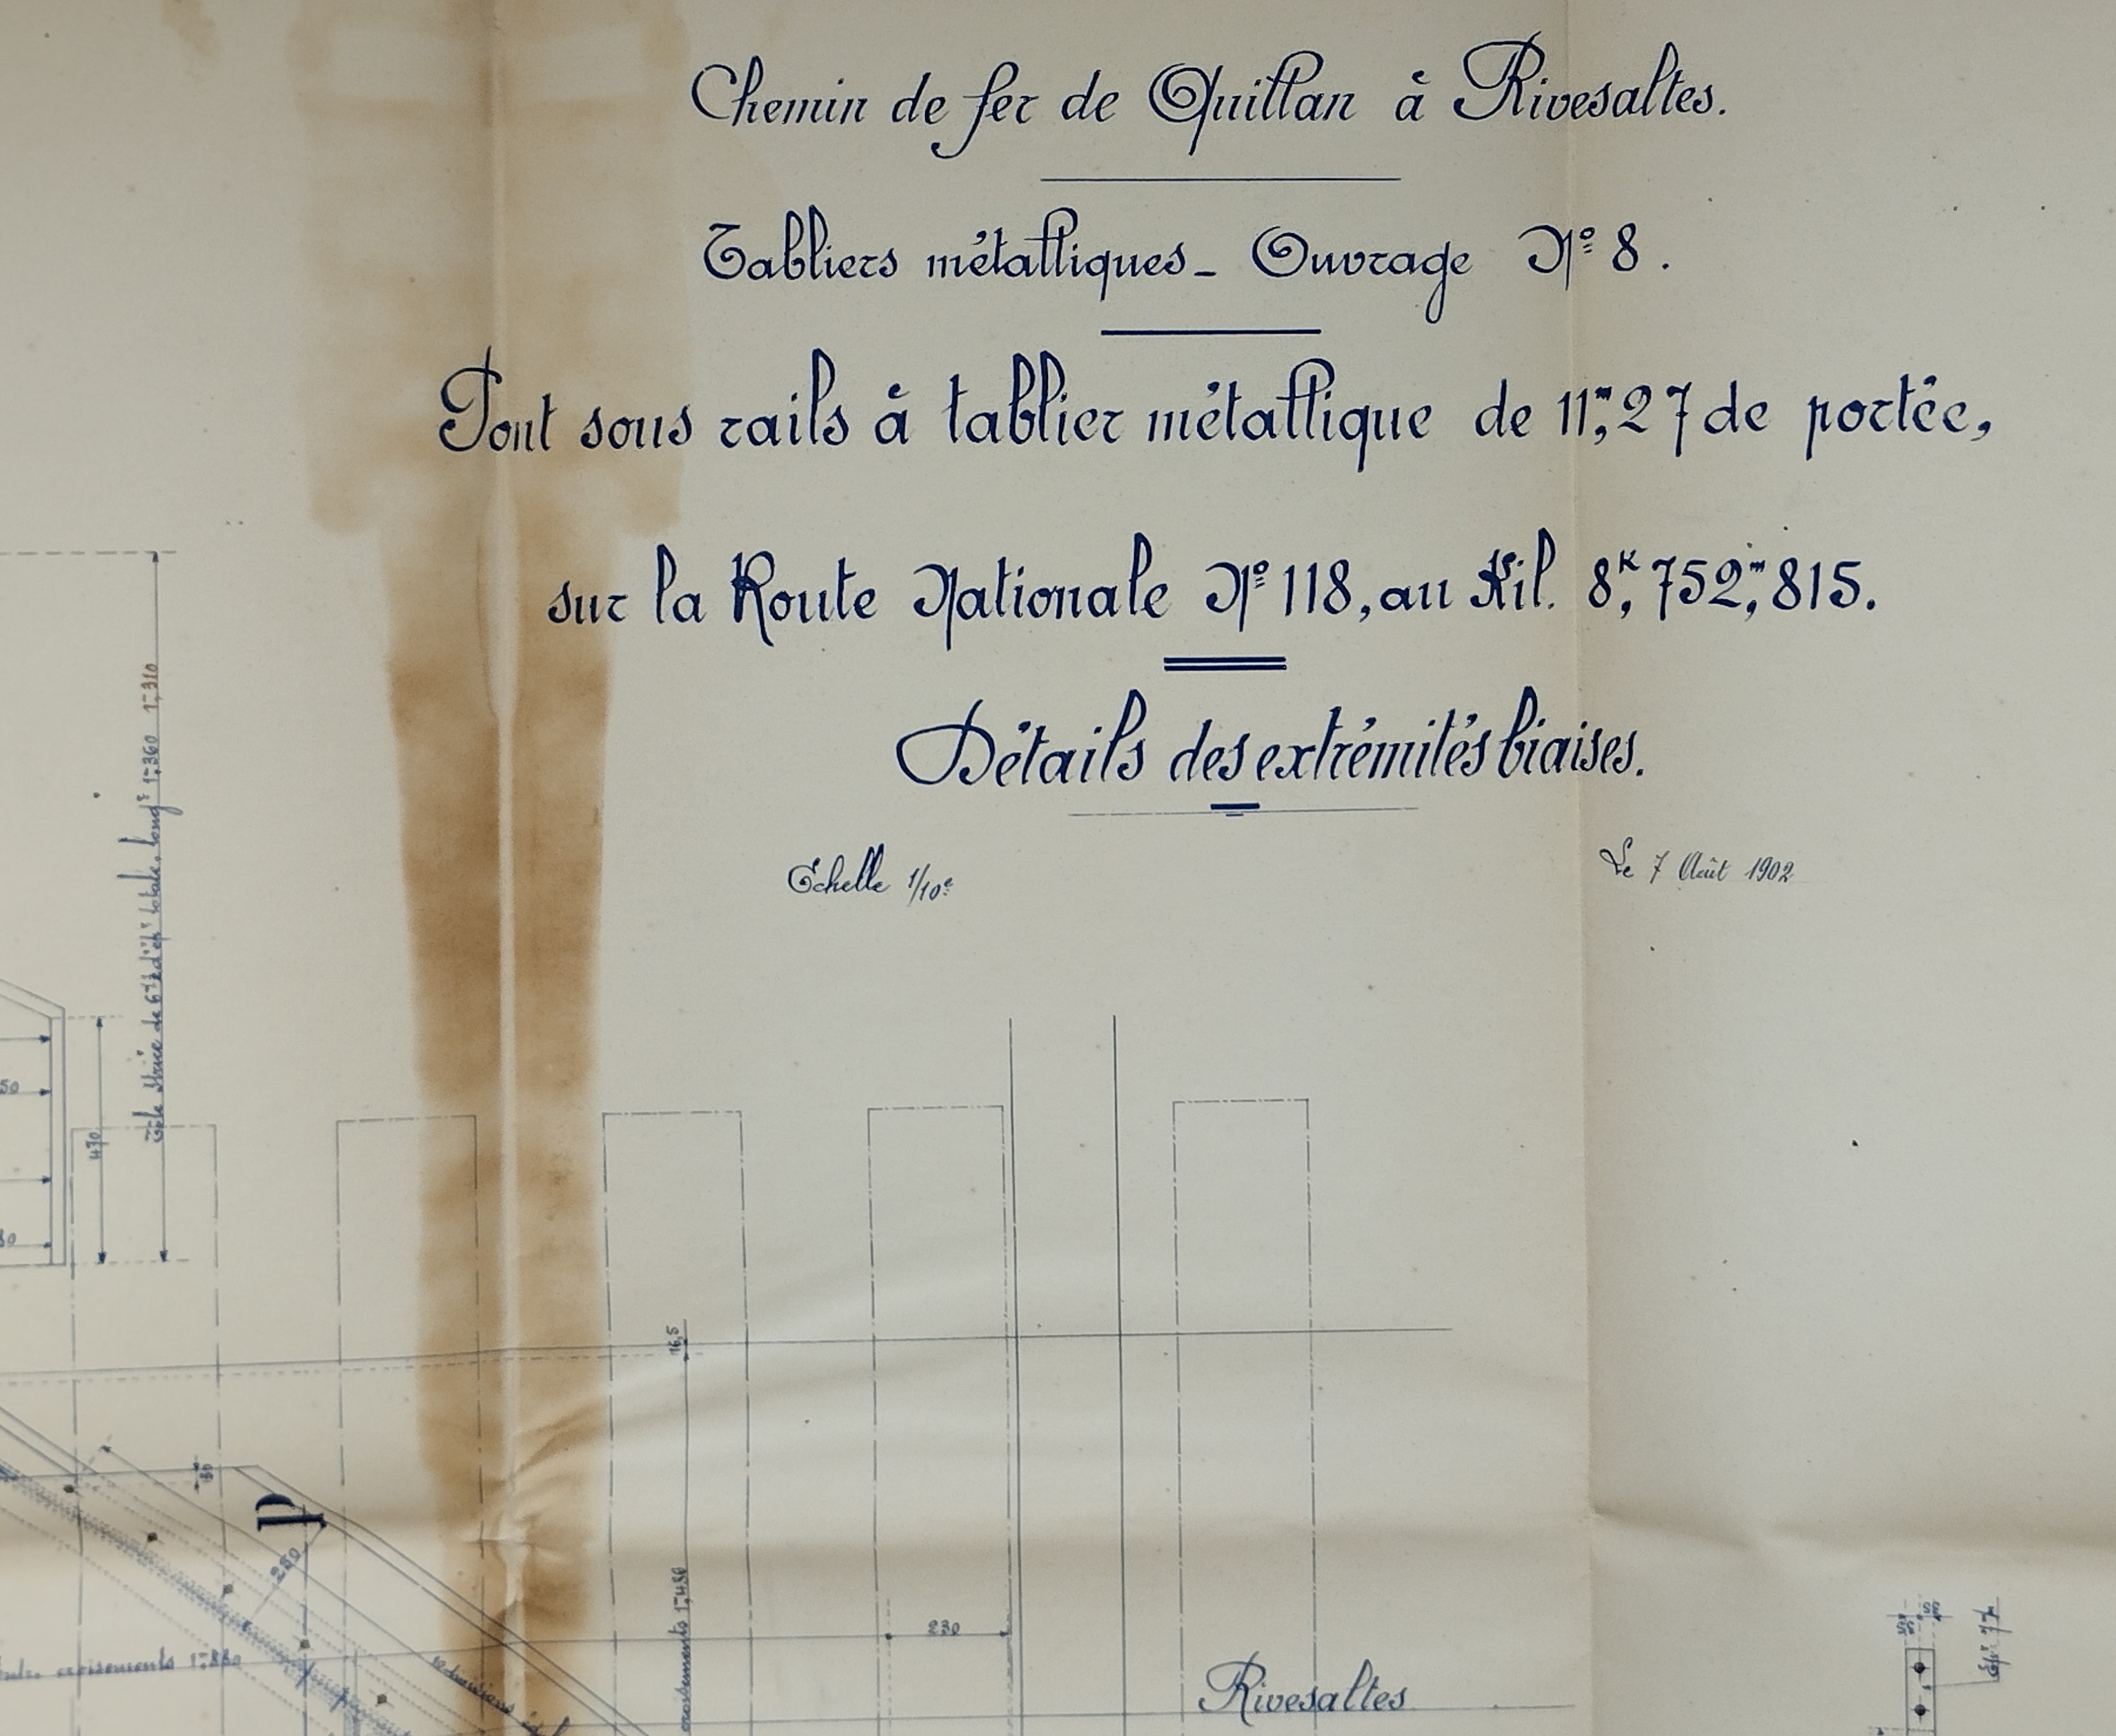 Chemin de fer de Quillan à Rivesaltes.
Tabliers métalliques - Ouvrage Nº 8.
Pont sous rails à tablier métallique de 11m,27 de portée,
sur la Route Nationale Nº 118, au Kil. 8K,752m,815.
Détails des extrémités biaises.
Echelle 1/10e
Le 7 Août 1902
Tôle striée de totale, longr 1m360 1m,310
50
470
80
16,5
p
250
croisements 1m,486
230
croisements 1m,880
Rivesaltes